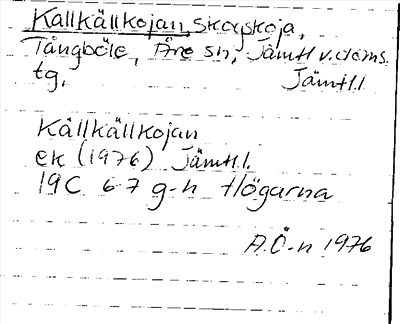 Kallkällkojan, skogskoja,
Tångböle, Åre sn, Jämtl v. doms.
tg. Jämtl.l
Kållkällkojan
ek (1976) Jämtl.l.
19C 6-7 g-h Högarna
A.Ö-n 1976